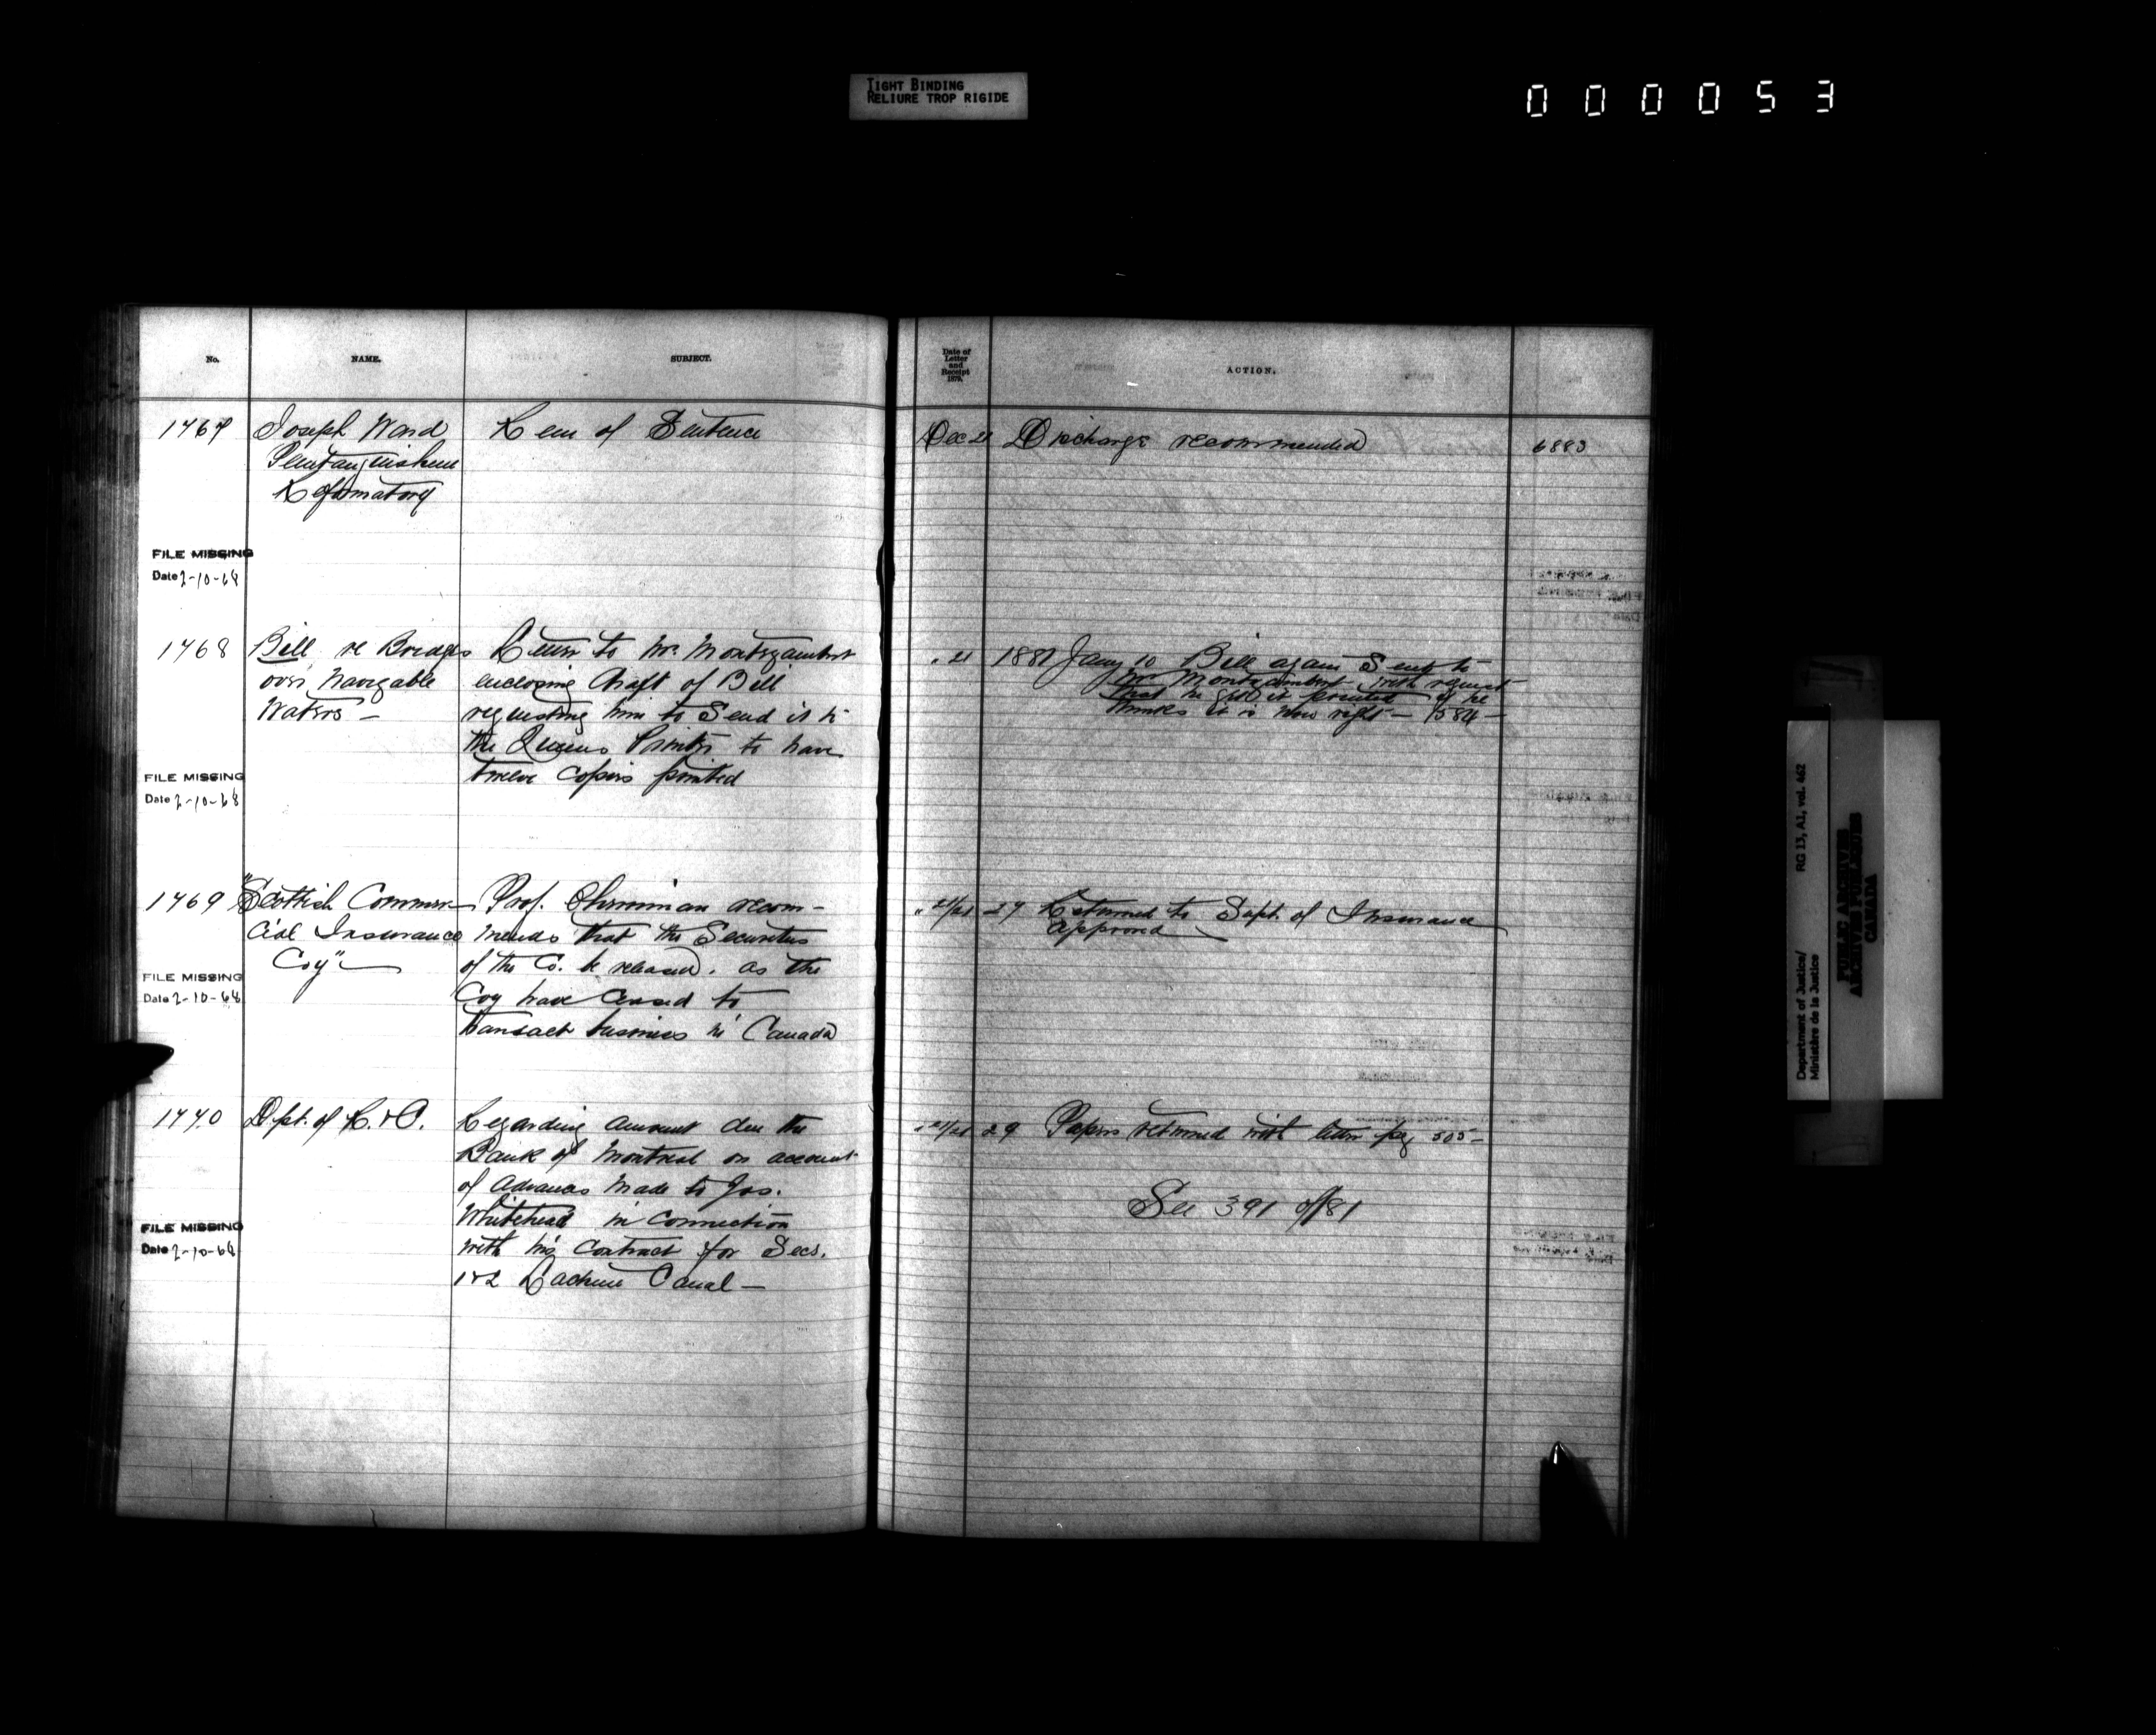 TIGHT BINDING
RELIURE TROP RIGIDE
000053
No.
NAME.
SUBJECT.
Date of
Letter
and
Receipt
1879.
ACTION.
1767
Joseph Ward
Penetanguishene
Reformatory
Rem of Sentence
Dec 21
Discharge recommended
6883
FILE MISSING
Date 2-10-68
1768
Bill re Bridges
over Navigable
Waters —
Letter to Mr. Montizambert
enclosing draft of Bill
requesting him to Send it to
the Queens Printer to have
twelve copies printed
" 21
1881 Jany 10 Bill again Sent to
Mr Montizambert with request
that he get it printed if he
thinks it is now right — 1584 —
FILE MISSING
Date 2-10-68
1769
"Scottish Commer-
cial Insurance
Coy" —
Prof. Cherriman recom-
mends that the Securities
of the Co. be released. as the
Coy have ceased to
transact business in Canada
" 21/21
27 Returned to Supt. of Insurance
approved
FILE MISSING
Date 2-10-68
1770
Dpt. of R. & C.
Regarding amount due the
Bank of Montreal on account
of Advances made to Jos.
Whitehead in connection
with his contract for Secs.
1 & 2 Lachine Canal —
" 21/21
29 Papers returned with letter pag 505 —
See 391 of /81
FILE MISSING
Date 2-10-68
Department of Justice/
Ministère de la Justice
RG 13, A1, vol. 462
PUBLIC ARCHIVES
ARCHIVES PUBLIQUES
CANADA